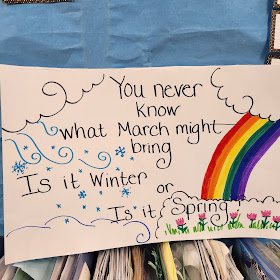 You never
know
what March might
bring
Is it Winter
or
Is it Spring!